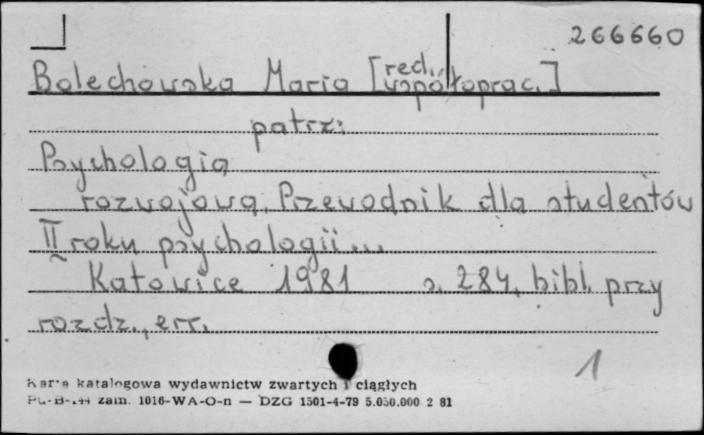 266660
Bolechowska Maria [red., współoprac.]
patrz:
Psychologia
rozwojowa. Przewodnik dla studentów
II roku psychologii...
Katowice 1981 s. 284, bibl. przy
rozdz., err.
1
Karta katalogowa wydawnictw zwartych i ciągłych
Pu-B-144 zam. 1016-WA-O-n — DZG 1501-4-79 5.050.000 2 81